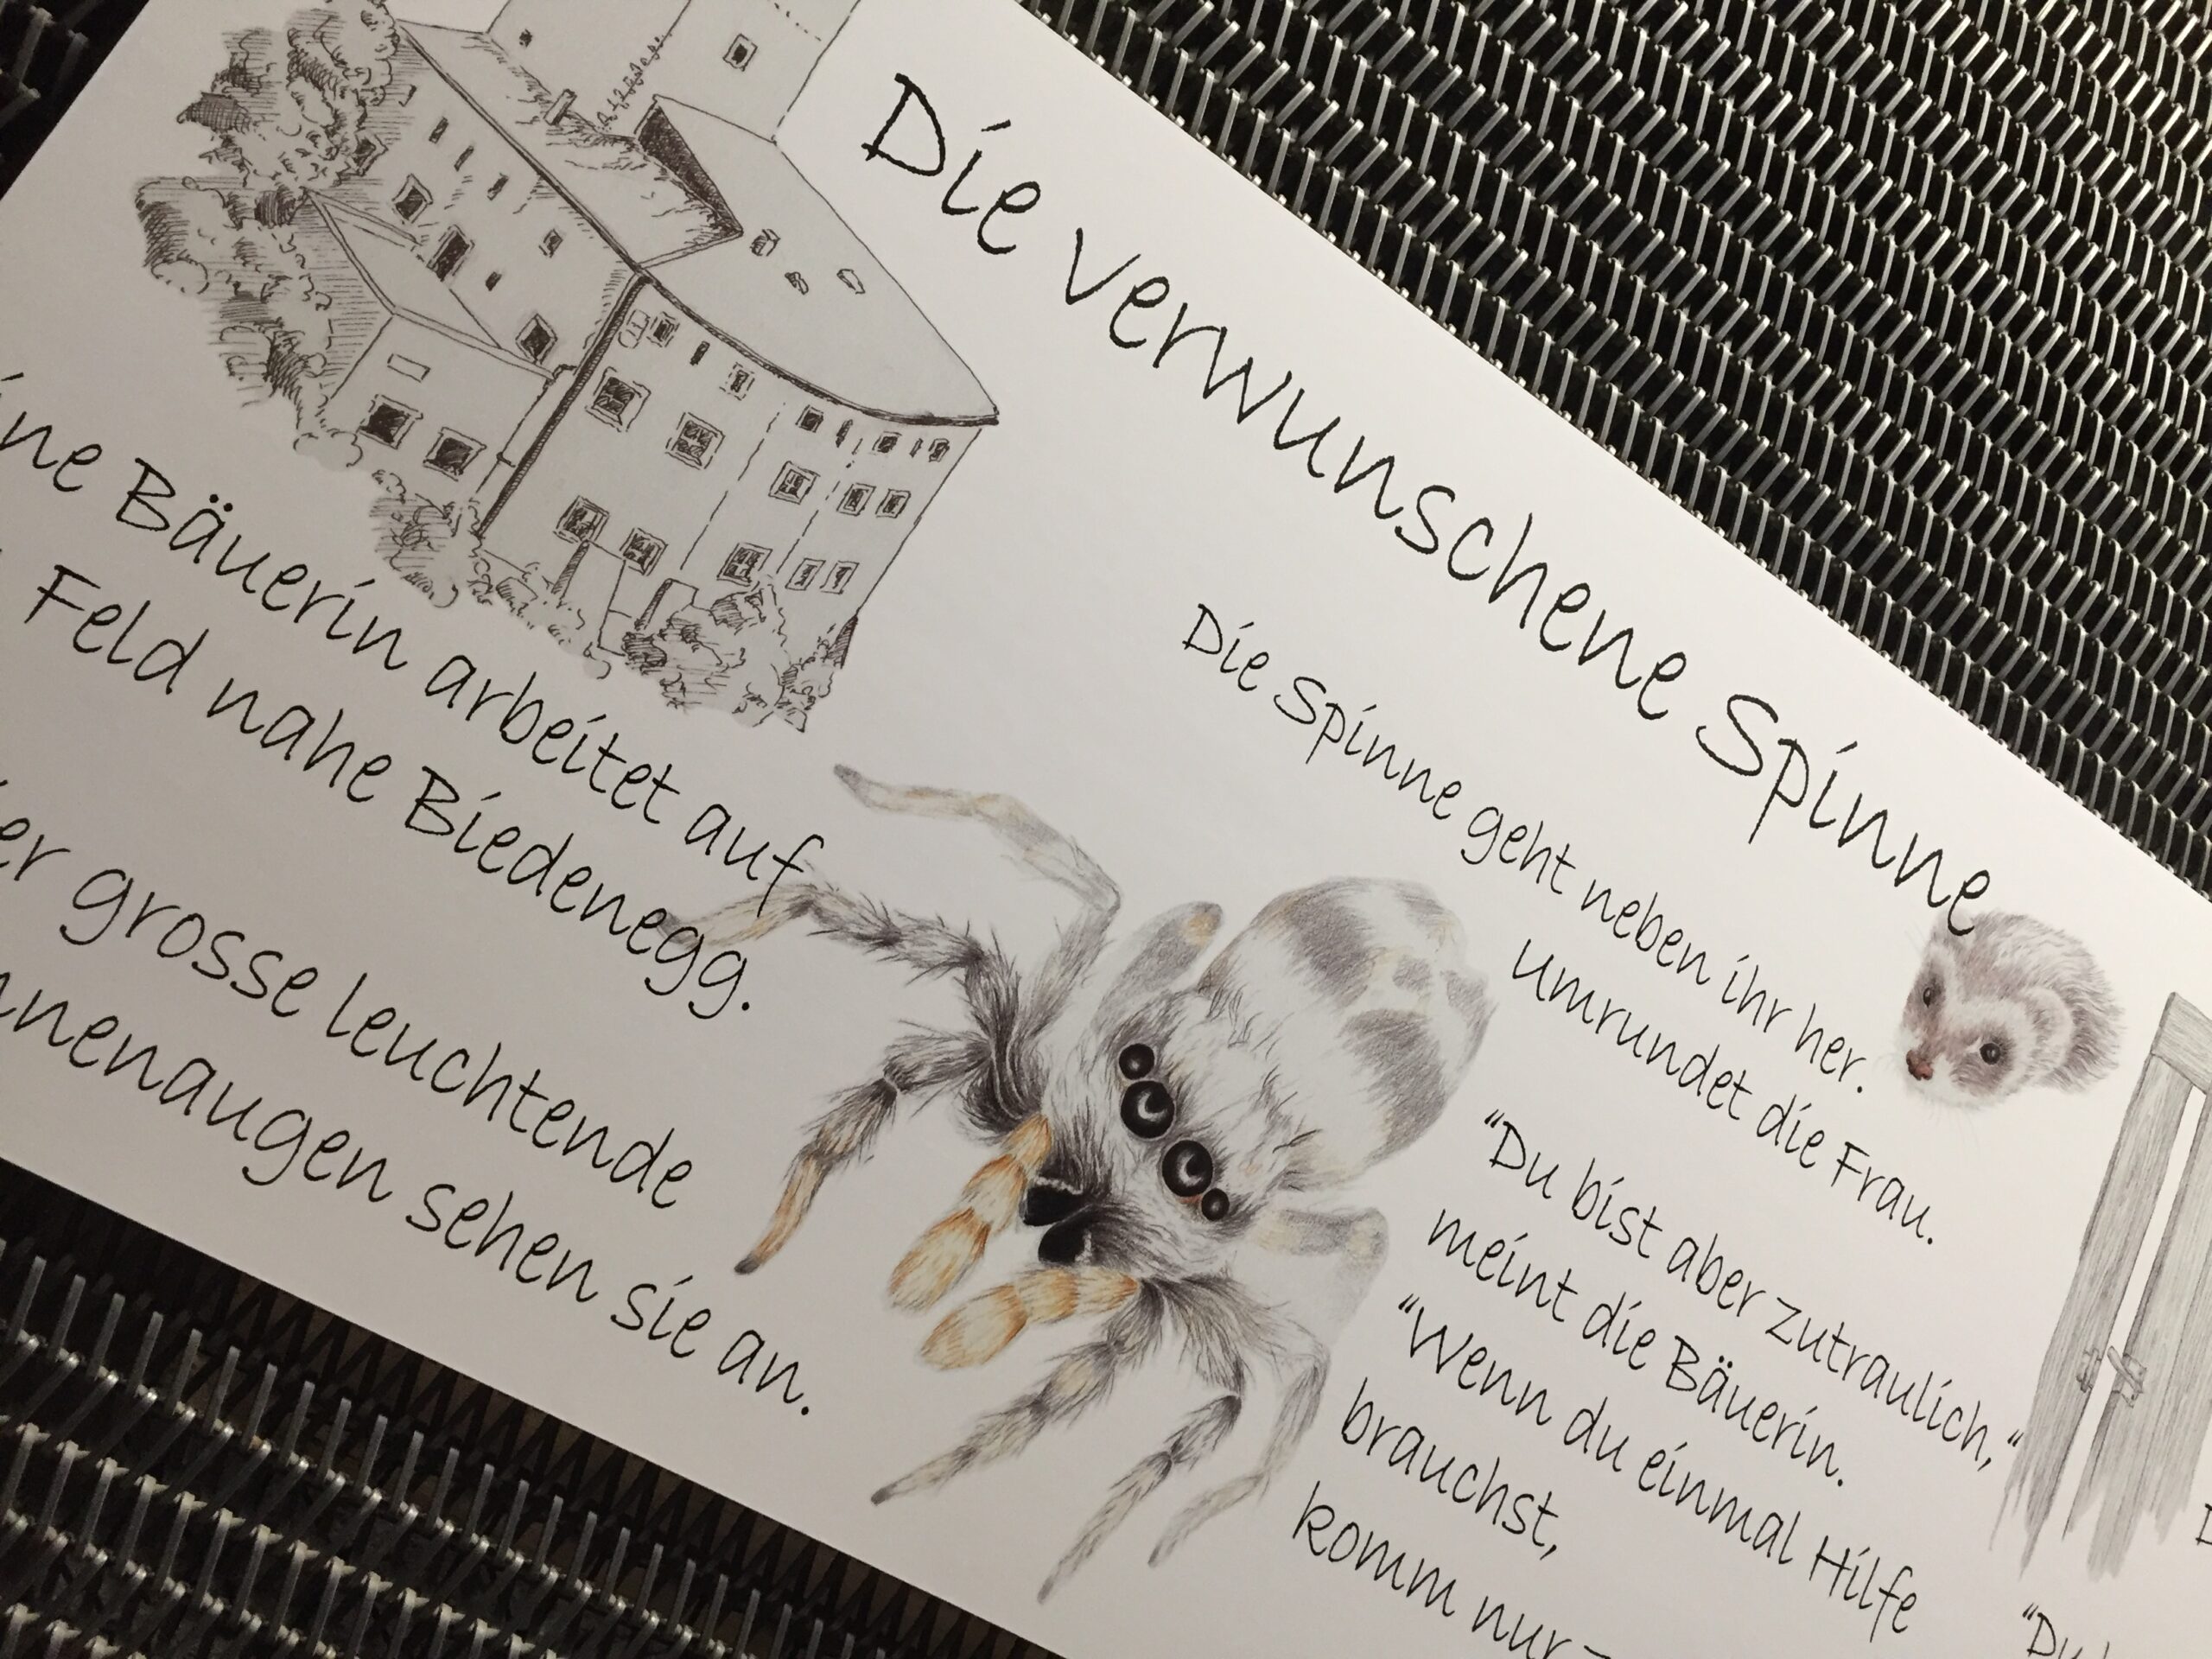 Die verwunschene Spinne
Bäuerin arbeitet auf
Feld nahe Biedenegg.
grosse leuchtende
sehen sie an.
Die Spinne geht neben ihr her.
umrundet die Frau.
"Du bist aber zutraulich,"
meint die Bäuerin.
"Wenn du einmal Hilfe
brauchst,
komm nur